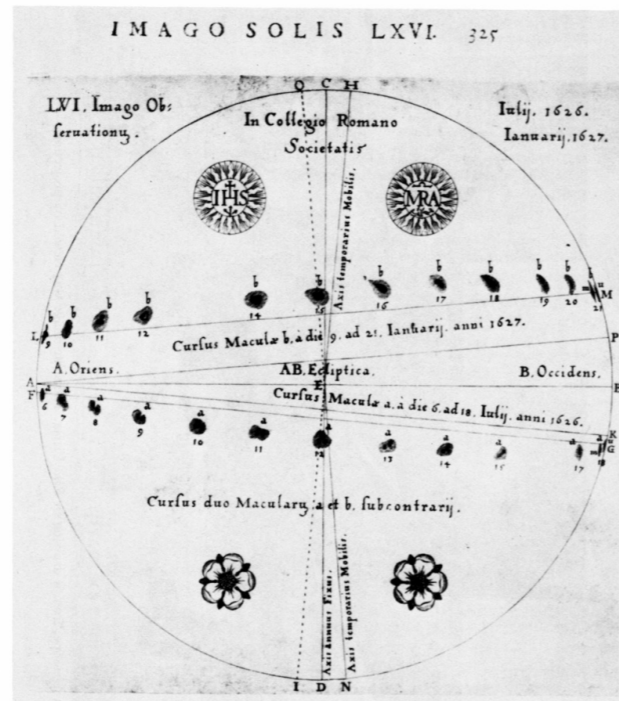 IMAGO SOLIS LXVI. 325
O C H
LVI. Imago Ob=
seruationuȝ.
In Collegio Romano
Societatis
Iulij. 1626.
Ianuarij. 1627.
IHS
MRA
Axis temporarius Mobilis.
b b b b b b b b b b b b
L 9 10 11 12 14 15 16 17 18 19 20 21 M
Cursus Maculæ b. à die 9. ad 21. Ianuarij. anni 1627.
P
A. Oriens. AB. Ecliptica. B. Occidens.
A E B
F
Cursus Maculæ a. à die 6. ad 18. Iulij. anni 1626.
K
a a a a a a a a a a a
G
6 7 8 9 10 11 12 13 14 15 17 18
Cursus duo Macularuȝ a et b. subcontrarij.
Axis annuus Fixus.
Axis temporarius Mobilis.
I D N